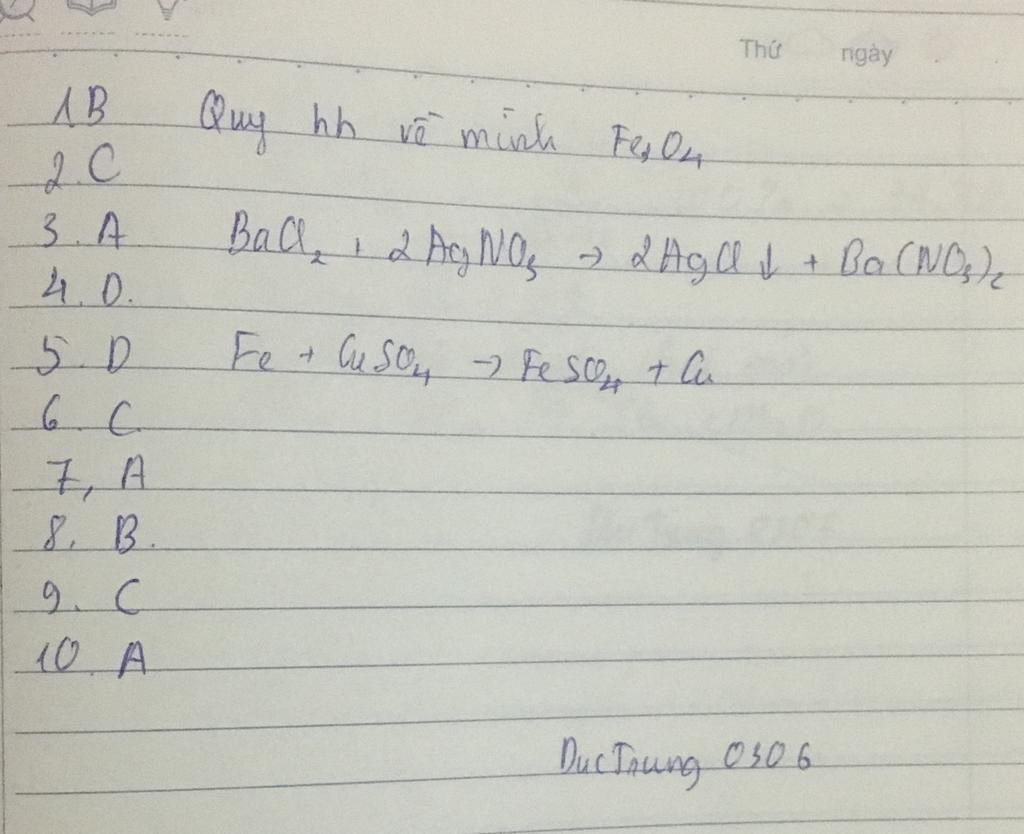 Thứ ngày
1B Quy hh về mình Fe3O4
2. C
3. A BaCl2 + 2AgNO3 → 2AgCl ↓ + Ba(NO3)2
4. D.
5. D Fe + CuSO4 → FeSO4 + Cu
6. C
7, A
8. B.
9. C
10. A
DucTrung 0306